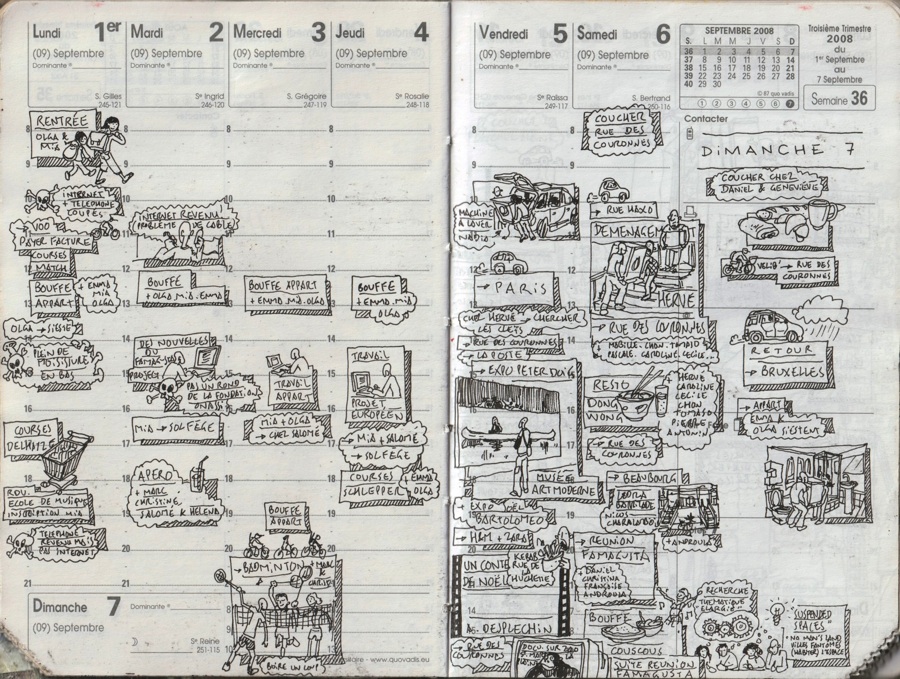 Lundi 1er
(09) Septembre
Dominante
S. Gilles
245-121
RENTRÉE
OLGA &
MIA
INTERNET
+ TELEPHONE
COUPÉS
VOO
PAYER FACTURE
COURSES
MATCH
BOUFFE
APPART
+ EMMA
MIA
OLGA
OLGA → SIESTE
PLEIN DE
MOISISSURE
EN BAS
COURSES
DELHAIZE
RDV.
ECOLE DE MUSIQUE
INSCRIPTION MIA
TELEPHONE
REVENU MAIS
PAS INTERNET
Dimanche 7
(09) Septembre
Dominante
Ste Reine
251-115
Mardi 2
(09) Septembre
Dominante
Ste Ingrid
246-120
INTERNET REVENU
PROBLÈME DE CABLE
BOUFFE
+ OLGA. MIA. EMMA
DES NOUVELLES
DU
FAMAGUSTA
PROJECT
PAS UN ROND
DE LA FONDATION
ONASSIS
MIA → SOLFÈGE
APERO
+ MARC
CHRISTINE,
SALOME & HELENA
Mercredi 3
(09) Septembre
Dominante
S. Grégoire
247-119
BOUFFE APPART
+ EMMA. MIA. OLGA
TRAVAIL
APPART
MIA + OLGA
→ CHEZ SALOMÉ
BOUFFE
APPART
→ BADMINTON
+ MARC
& CHRISTINE
BOIRE UN COUP
Jeudi 4
(09) Septembre
Dominante
Ste Rosalie
248-118
BOUFFE
+ EMMA. MIA
OLGA
TRAVAIL
PROJET
EUROPÉEN
MIA + SALOMÉ
→ SOLFÈGE
COURSES
SCHLEPPER
+ EMMA
OLGA
www.quovadis.eu
Vendredi 5
(09) Septembre
Dominante
Ste Raïssa
249-117
MACHINE
A LAVER
NADIA
→ PARIS
CHEZ HERVÉ → CHERCHER
LES CLEFS
→ RUE DES COURONNES
→ LA POSTE
→ EXPO PETER DOIG
MUSÉE
ART MODERNE
+ EXPO JOËL
BARTOLOMEO
→ H&M + ZARA
KEBAB
RUE DE LA
HUCHETTE
UN CONTE
DE NOËL
DESPLECHIN
→ RUE DES
COURONNES
Samedi 6
(09) Septembre
Dominante
S. Bertrand
250-116
COUCHER
RUE DES
COURONNES
→ RUE HAXO
DEMENAGEMENT
HERVÉ
→ RUE DES COURONNES
RESTO
DONG
WONG
+ HERVÉ
CAROLINE
CECILE
CHON
TOMASO
PIERRE
ANTONIN
→ RUE DES
COURONNES
→ BEAUBOURG
+ ANDROULA
→ REUNION
FAMAGUSTA
+ DANIEL
CHRISTINA
FRANÇOISE
ANDROULA
BOUFFE
COUSCOUS
SUITE REUNION
FAMAGUSTA
SEPTEMBRE 2008
S. L M M J V S D
36 1 2 3 4 5 6 7
37 8 9 10 11 12 13 14
38 15 16 17 18 19 20 21
39 22 23 24 25 26 27 28
40 29 30
© 87 quo vadis
1 2 3 4 5 6 7
Troisième Trimestre
2008
du
1er Septembre
au
7 Septembre
Semaine 36
Contacter
DIMANCHE 7
COUCHER CHEZ
DANIEL & GENEVIÈVE
VELIB' → RUE DES
COURONNES
RETOUR
→ BRUXELLES
→ APPART
EMMA &
OLGA SIESTENT
RECHERCHE
THEMATIQUE
ELARGIE
"SUSPENDED
SPACES"
"NO MAN'S LAND
VILLES FANTÔMES
(HABITER) L'ESPACE